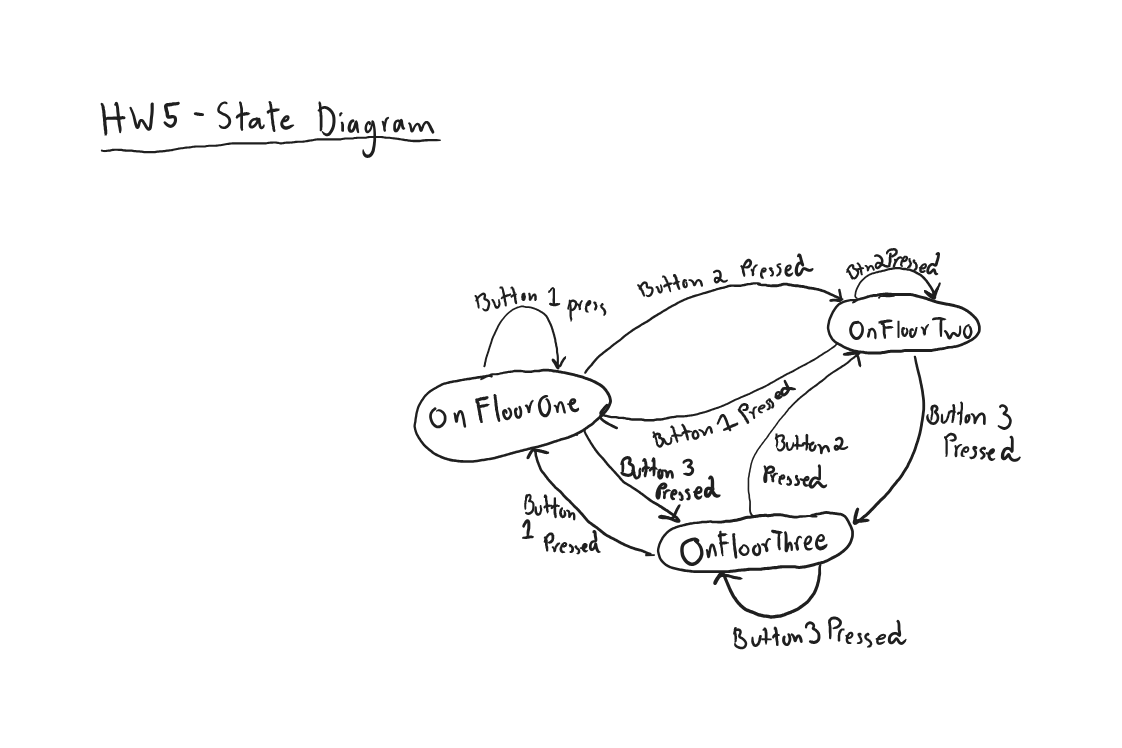 HW5 - State Diagram
Button 2 Pressed
Btn2Pressed
Button 1 press
OnFloorTwo
On FloorOne
Button 1 Pressed
Button 3
Pressed
Button 2
Pressed
Button 3
Pressed
Button
1 Pressed
OnFloorThree
Button 3 Pressed